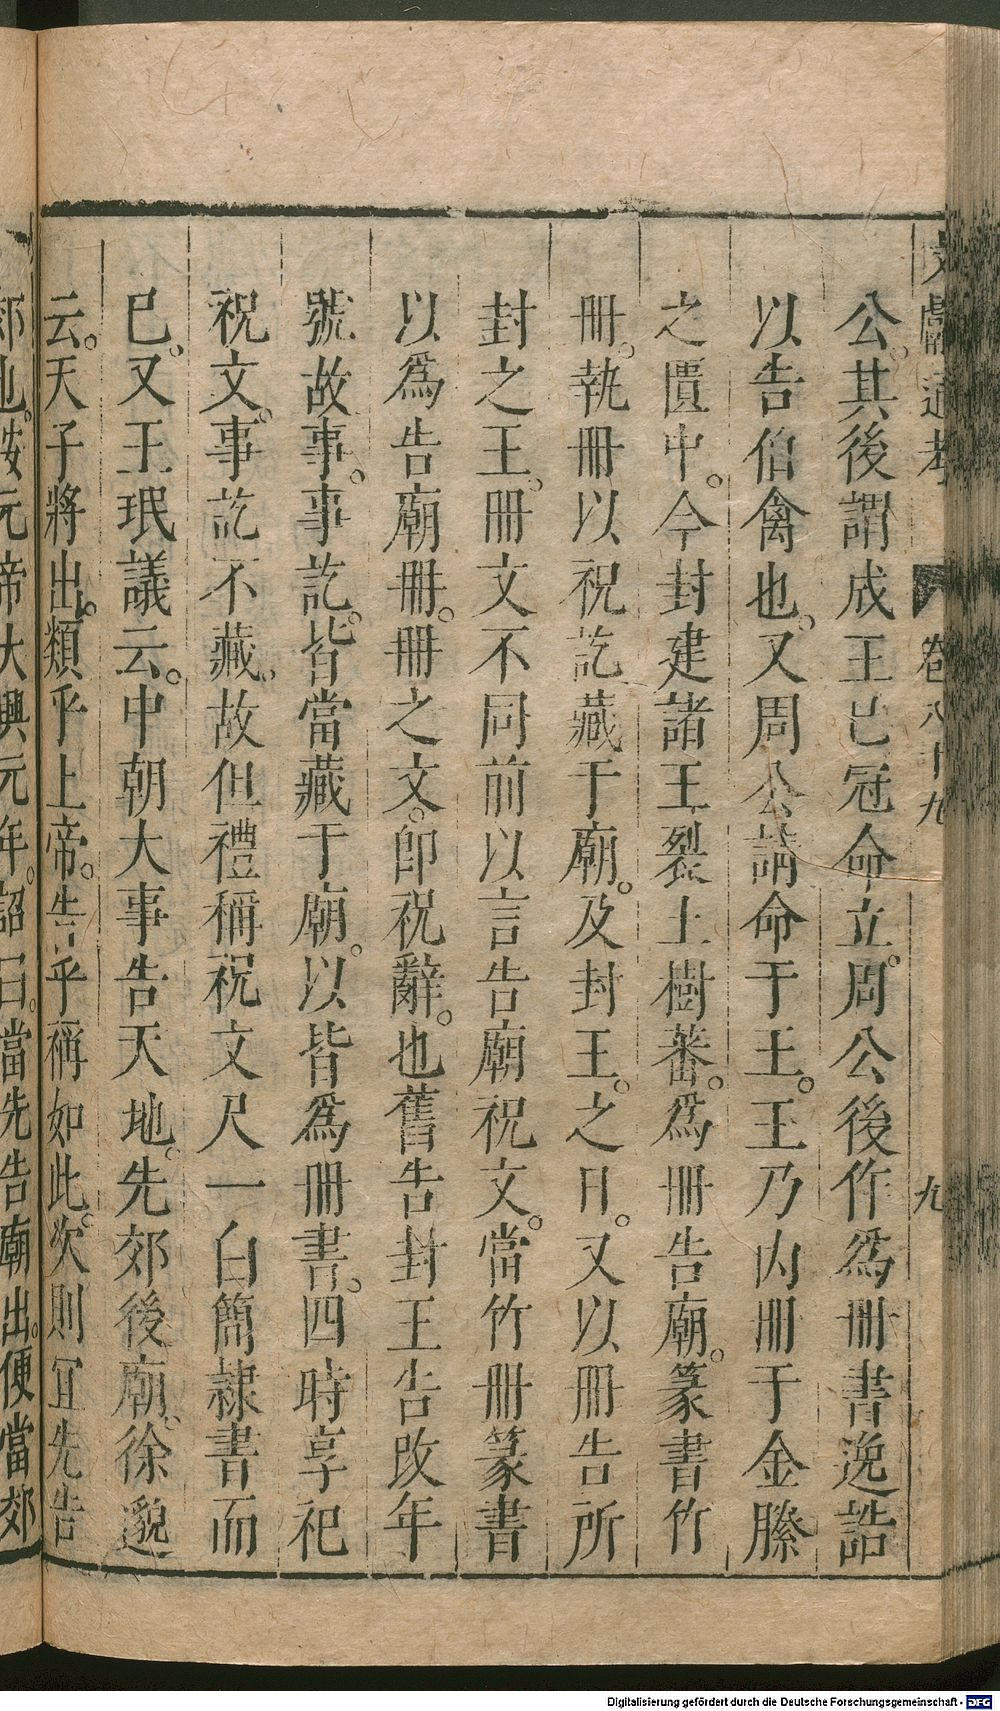 文獻通考 卷八十九 九
公。其後謂成王已冠命立。周公後作爲冊書逸誥
以告伯禽也。又周公請命于王。王乃內冊于金縢
之匱中。今封建諸王裂土樹蕃。爲冊告廟。篆書竹
冊。執冊以祝訖藏于廟。及封王。之日。又以冊告所
封之王。冊文不同前以言告廟祝文。當竹冊篆書
以爲告廟冊。冊之文。卽祝辭。也舊告封王告改年
號故事。事訖。皆當藏于廟。以皆爲冊書。四時享祀
祝文。事訖不藏。故但禮稱祝文尺一白簡隸書而
已。又王珉議云。中朝大事告天地。先郊後廟。徐邈
云。天子將出。類乎上帝。告乎稱如此。次則宜先告
郊也。按元帝大興元年。詔曰。當先告廟出。便當郊
Digitalisierung gefördert durch die Deutsche Forschungsgemeinschaft - DFG